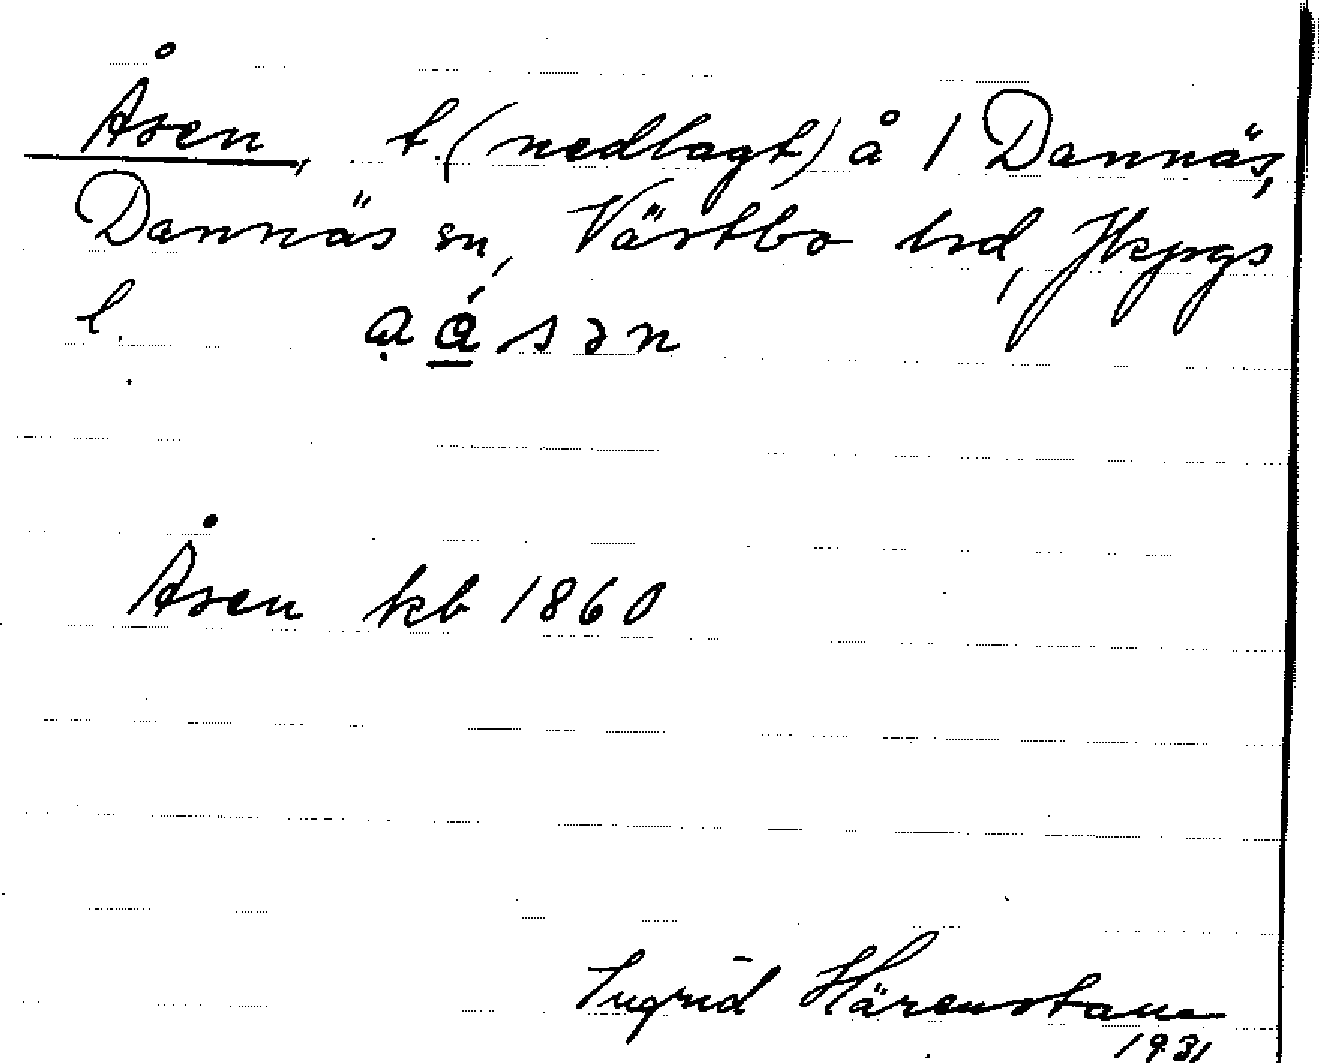 Åsen, t. (nedlagt) å 1 Dannäs,
Dannäs sn, Västbo hd, Jkpgs
l.
Åsen kb 1860
Ingrid Härenstam
1931